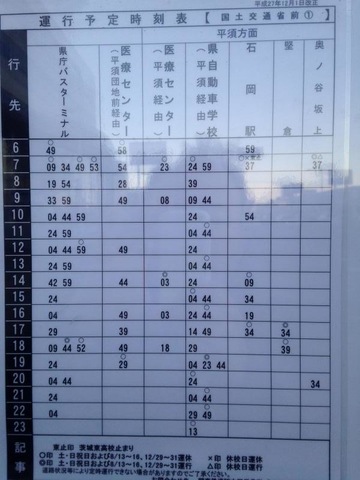 平成27年12月1日改正
運行予定時刻表【国土交通省前①】
行先
平須方面
県庁バスターミナル
医療センター(平須団地前経由)
医療センター(平須経由)
県自動車学校(平須経由)
石岡駅
堅倉
奥ノ谷坂上
6 49 58 59
7 09 34 49 53 54 23 24 59 37 37
8 19 54 28 39
9 33 59 49 08 09 44
10 04 44 59 24 54
11 24 59 04 44
12 04 44 59 49 04 44
13 24 59 04 44
14 42 59 44 03 24 09
15 24 04 44 34
16 04 44 49 03 24 44 19
17 29 39 14 49 34 34
18 09 44 52 49 18 29 39
19 24 29 04 23 44
20 04 44 24 34
21 24 04 44
22 04 29 49
23 13
記事
東止印 茨城東高校止まり
○印 土・日祝日および8/13~16、12/29~31運休 ×印 休校日運休
◎印 土・日祝日および8/13~16、12/29~31運行 △印 休校日運行
道路状況等により定時運行できない場合があります。